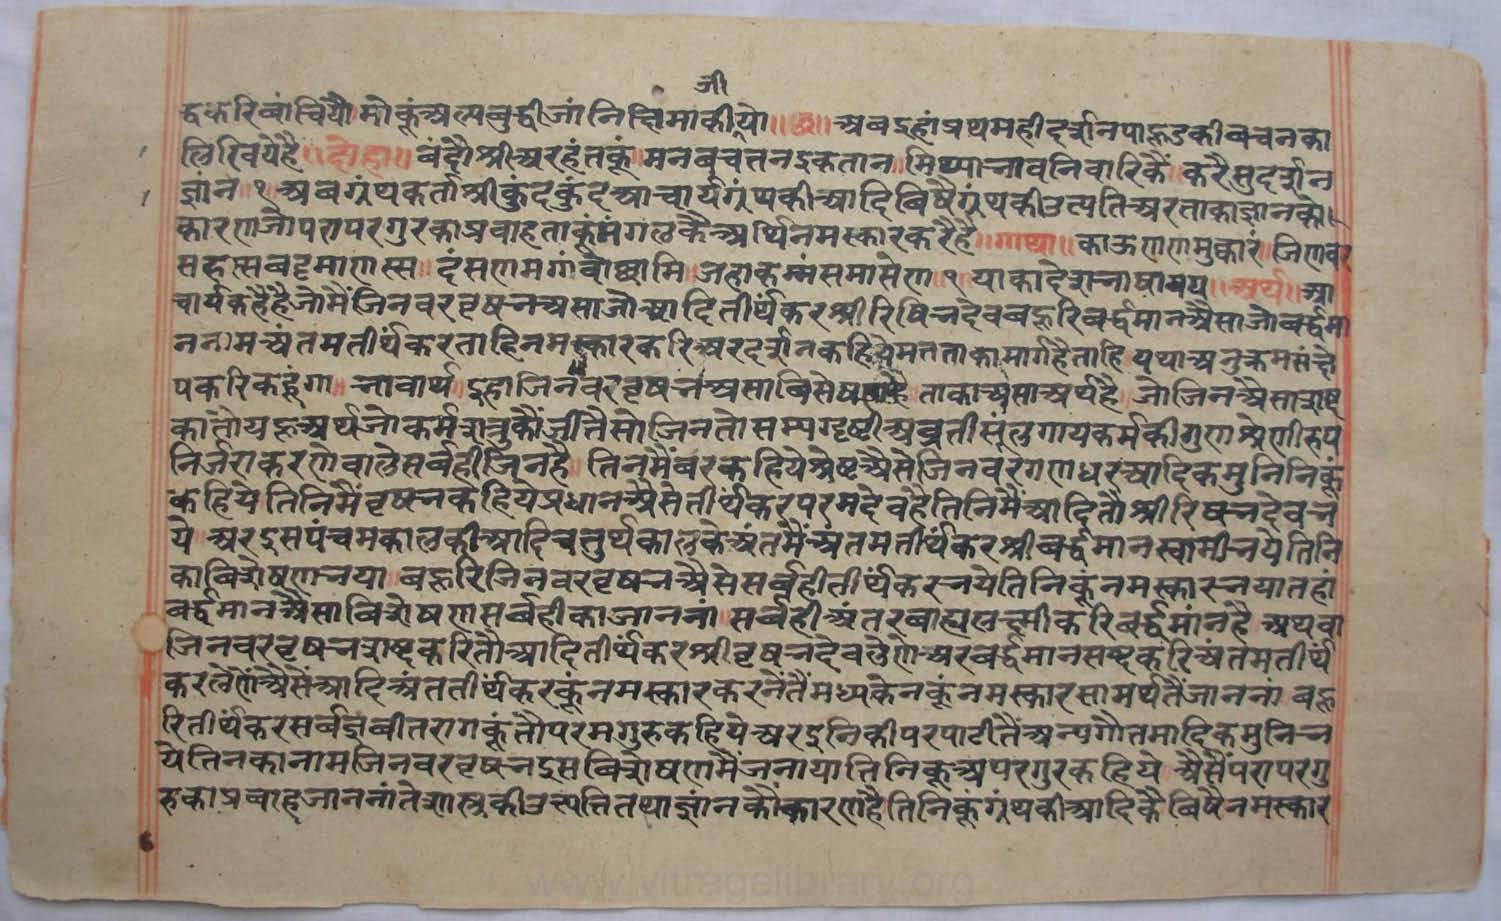 जी
द्धकरिबांचियौमोकूंअल्पबुद्धीजांनिछिमाकीयो॥छ॥अबइहांप्रथमहीदर्शनपाहुडकीबचनका
लिखियेहै॥दोहा॥बंदौश्रीअरहंतकूंमनबचतनइकतान॥मिथ्याभावनिवारिकैंकरैसुदर्शन
ज्ञांन१अबग्रंथकर्ताश्रीकुंदकुंदआचार्यग्रंथकीआदिबिषैग्रंथकीउत्पतिअरताकाज्ञानको
कारणजोपरापरगुरकाप्रवाहताकूंमंगलकैअर्थिनमस्कारकरैहै॥गाथा॥काऊणणमुक्कारंजिणवर
सहस्सबट्टमाणस्स॥दंसणमग्गंवोछामिजहाकम्मंसमासेण१याकादेशभाषामय॥अर्थ॥आ
चार्यकहैहैजोमैंजिनवरवृषभअसाजोआदितीर्थंकरश्रीरिषिभदेवबहुरिबर्द्धमानअैसाजोबर्द्धमा
ननामअंतमतीर्थंकरताहिनमस्कारकरिअरदर्शनकहियेमतताकामार्गहैताहियथाअनुक्रमसंछे
पकरिकहूंगा॥भावार्थ॥इहाजिनवरवृषभअसाबिसेषणहैताकाअसाअर्थहै॥जोजिनअैसाशब्द
कातोयहुअर्थजोकर्मशत्रुकौंजीतैसोजिनतोसम्यग्दृष्टीअव्रतीसूंलगायकर्मकीगुणश्रेणीरूप
निर्जराकरणवालेसर्बहीजिनहै॥तिनमैंबरकहियेश्रेष्टअैसेजिनवरगणधरआदिकमुनिनिकूं
कहियेतिनिमैंवृषभकहियेप्रधानअैसेतीर्थंकरपरमदेवहैतिनिमैंआदितौश्रीरिषभदेवभ
येअरइसपंचमकालकीआदिचतुर्थकालकेअंतमैंअंतमतीर्थंकरश्रीबर्द्धमानस्वामीभयेतिनि
काबिशेषणभया॥बहुरिजिनवरवृषभअैसेसर्ब्बहीतीर्थंकरभयेतिनिकूंनमस्कारभयातहां
बर्द्धमानअैसाबिशेषणसर्बहीकाजाननां॥सर्बहीअंतरबाह्यलक्ष्मीकरिबर्द्धमांनहै॥अथवा
जिनवरवृषभशब्दकरितौआदितीर्थंकरश्रीवृषभदेवलेणेअरबर्द्धमानसब्दकरिअंतमतीर्थं
करलेणेंअैसेंआदिअंततीर्थंकरकूंनमस्कारकरनेतैंमध्यकेनकूंनमस्कारसामर्थतैंजाननां॥बहु
रितीर्थंकरसर्बज्ञवीतरागकूंतौपरमगुरुकहियेअरइनिकीपरपाटीतैंअन्यगौतमादिकमुनिभ
येतिनकानामजिनवरवृषभइसबिशेषणमैंजनायातिनिकूंअपरगुरकहिये॥अैसैंपरापरगु
रुकाप्रवाहजाननांतेशास्त्रकीउत्पत्तितथाज्ञांनकौंकारणहैतिनिकूंग्रंथकीआदिकैबिषैनमस्कार
www.vitragelibrary.org